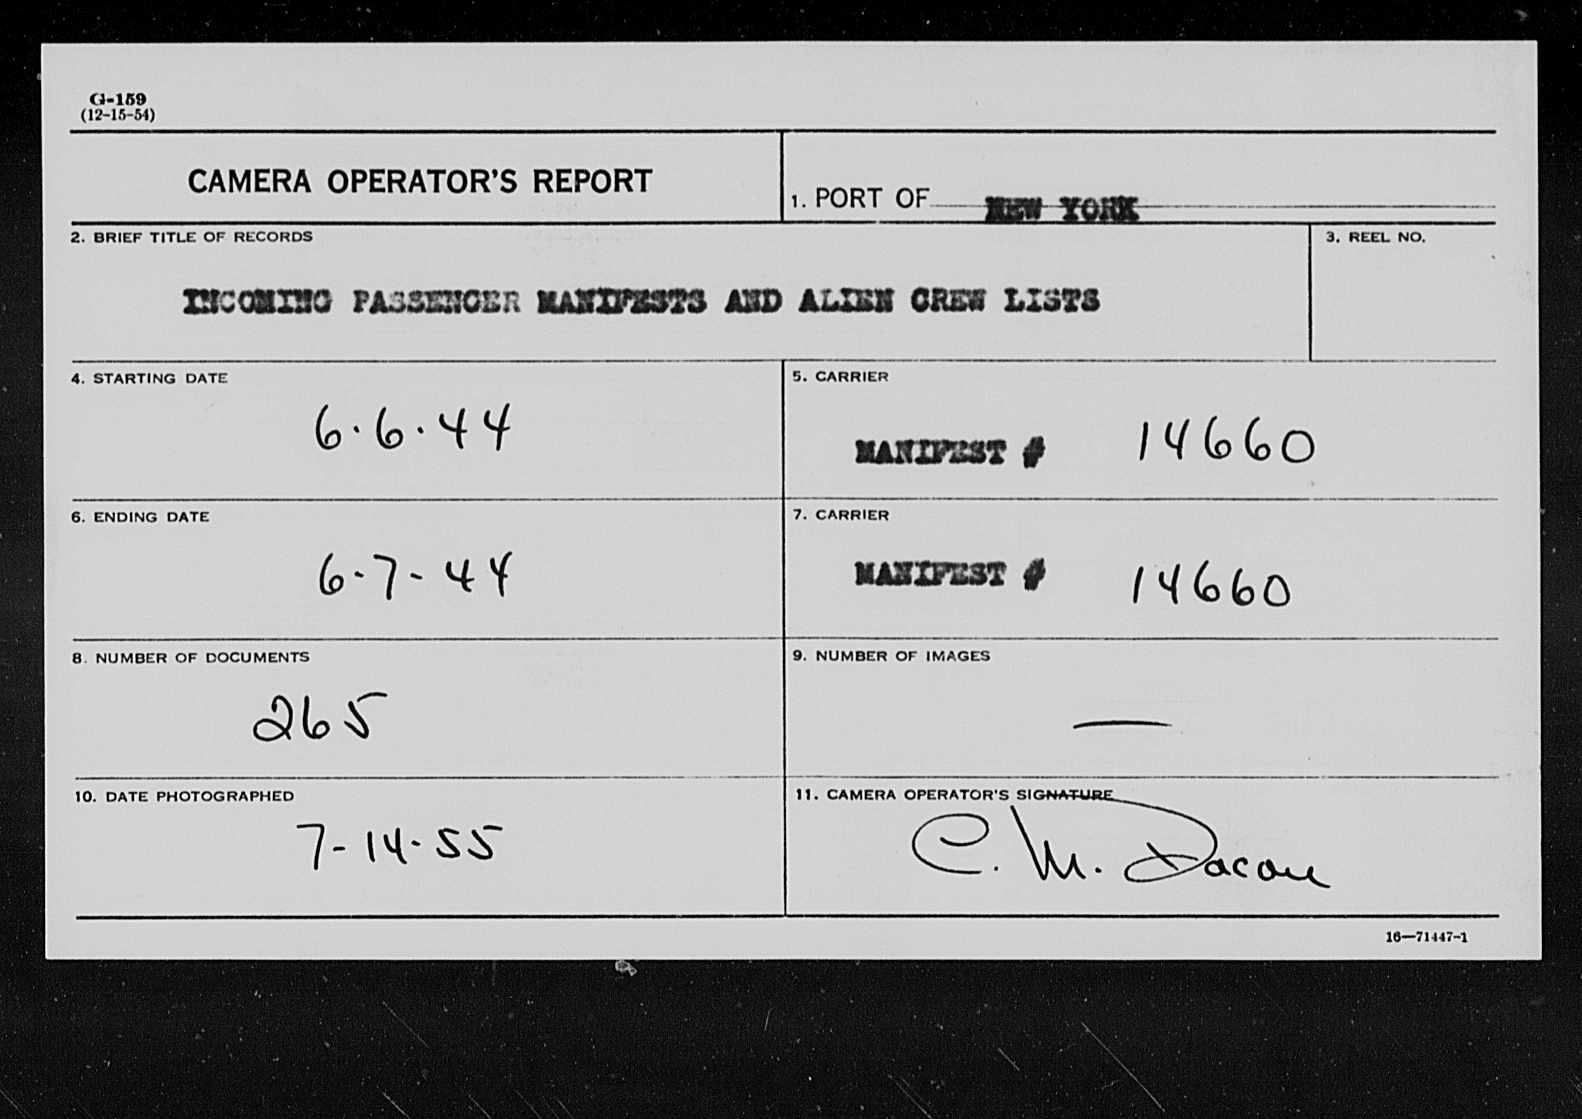 G-159
(12-15-54)
CAMERA OPERATOR'S REPORT
1. PORT OF NEW YORK
2. BRIEF TITLE OF RECORDS
3. REEL NO.
INCOMING PASSENGER MANIFESTS AND ALIEN CREW LISTS
4. STARTING DATE
5. CARRIER
6·6·44
MANIFEST # 14660
6. ENDING DATE
7. CARRIER
6-7-44
MANIFEST # 14660
8. NUMBER OF DOCUMENTS
9. NUMBER OF IMAGES
265
—
10. DATE PHOTOGRAPHED
11. CAMERA OPERATOR'S SIGNATURE
7-14-55
C. M.
16—71447-1